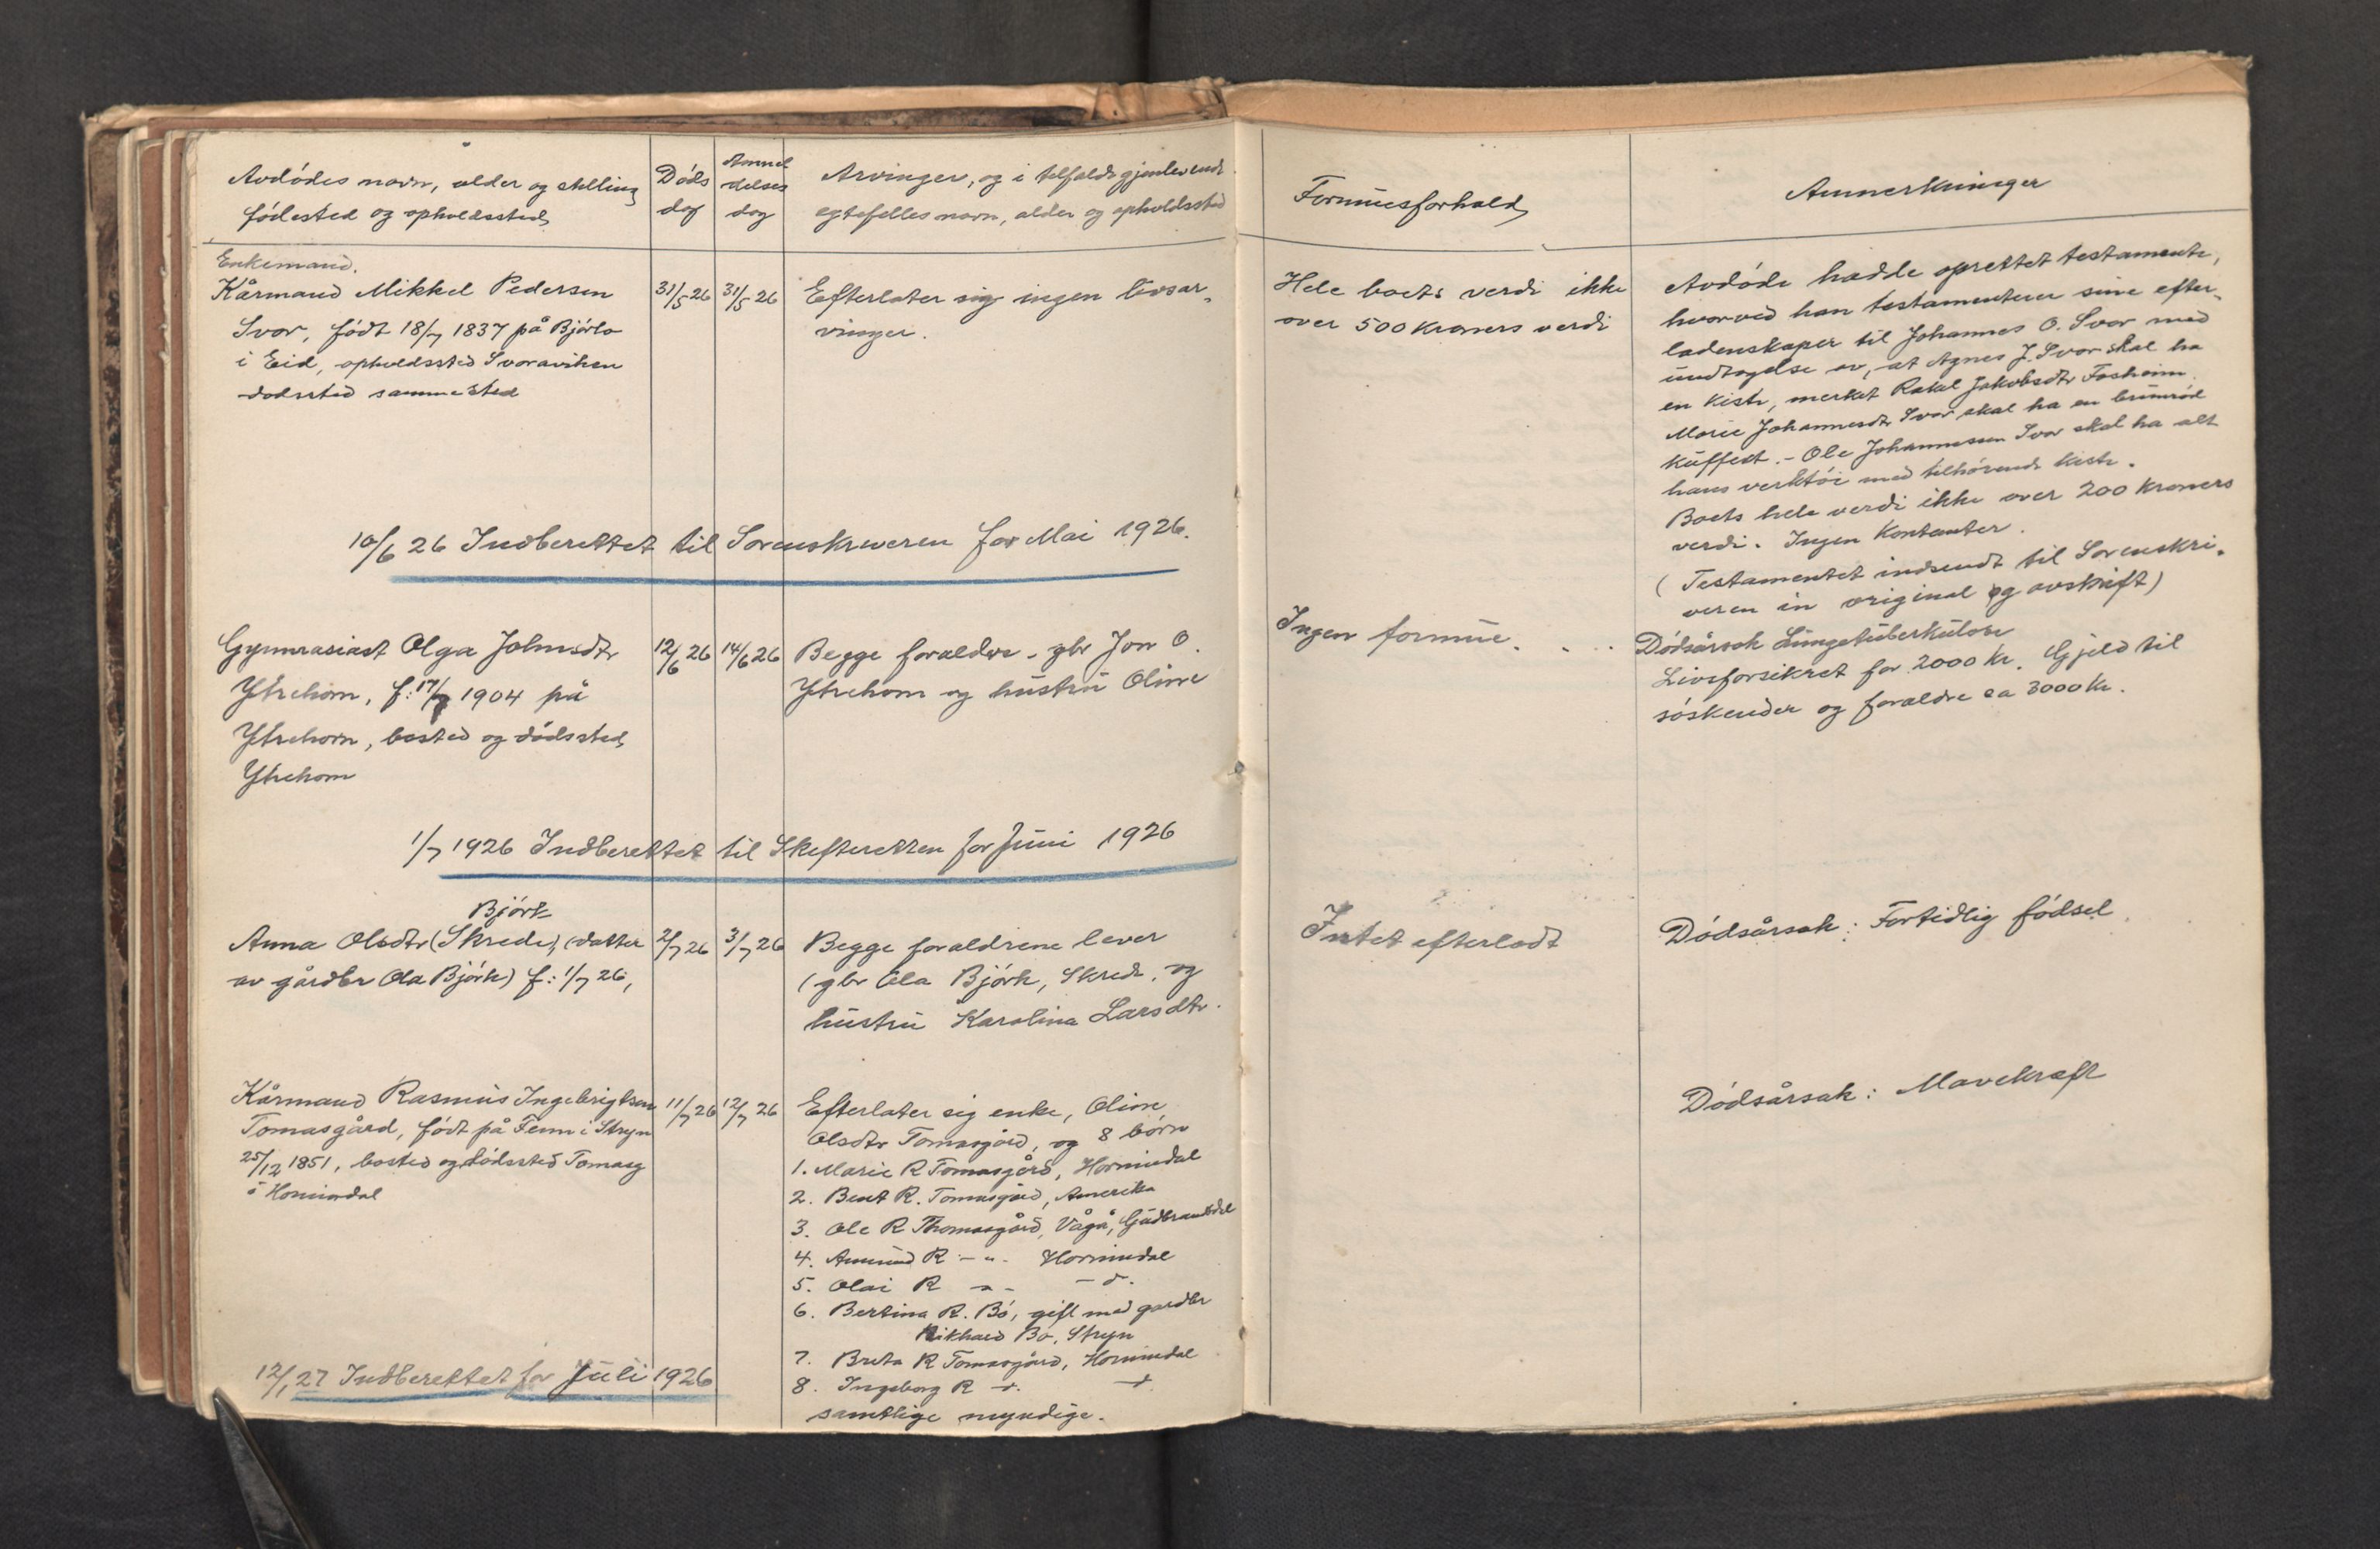 Avdödes navn, alder og stilling
födested og opholdssted
Döds
dag
Anmel
delses
dag
Arvinger, og i tilfælde gjenlevende
egtefelles navn, alder og opholdssted
Formuesforhold
Anmerkninger
Enkemand.
Kårmand Mikkel Pedersen
Svor, födt 18/7 1837 på Björlo
i Eid, opholdssted Svoraviken
dödssted sammested
31/5 26
31/5 26
Efterlater sig ingen livsar-
vinger.
Hele boets verdi ikke
over 500 kroners verdi
Avdöde hadde oprettet testamente,
hvorved han testamenterer sine efter-
ladenskaper til Johannes O. Svor med
undtagelse av, at Agnes J. Svor skal ha
en kiste, merket Rakel Jakobsdtr Fosheim.
Marie Johannesdtr Svor skal ha en brunröd
kuffert. - Ole Johannessen Svor skal ha alt
hans verktöi med tilhörende kiste.
Boets hele verdi ikke over 200 kroners
verdi. Ingen kontanter.
(Testamentet indsendt til Sorenskri-
veren in original og avskrift)
10/6 26 Indberettet til Sorenskriveren for Mai 1926.
Gymnasiast Olga Johnsdtr
Ytrehorn, f: 17/7 1904 på
Ytrehorn, bosted og dödssted
Ytrehorn
12/6 26
14/6 26
Begge forældre - gbr Jon O.
Ytrehorn og hustru Oline
Ingen formue. . .
Dödsårsak Lungetuberkulose
Livsforsikret for 2000 kr. Gjeld til
söskender og forældre ca 3000 kr.
1/7 1926 Indberettet til Skifteretten for Juni 1926
Björk
Anna Olsdtr (Skrede), (datter
av gårdbr Ola Björk) f: 1/7 26,
2/7 26
3/7 26
Begge forældrene lever
(gbr Ola Björk, Skrede, og
hustru Karolina Larsdtr.
Intet efterladt
Dödsårsak: Fortidlig födsel
Kårmand Rasmus Ingebrigtsen
Tomasgård, födt på Fenn i Stryn
25/12 1851, bosted og dödssted Tomasg
i Hornindal
11/7 26
12/7 26
Efterlater sig enke, Oline
Olsdtr Tomasgård, og 8 börn
1. Marie R Tomasgård, Hornindal
2. Bent R. Tomasgård, Amerika
3. Ole R Thomasgård, Vågå, Gudbrandsdal
4. Anund R - " - Hornindal
5. Olai R - " - - d.
6. Bertina R. Bö, gift med gardbr
Rikhard Bö, Stryn
7. Brita R Tomasgård, Hornindal
8. Ingeborg R - " - - " -
samtlige myndige.
Dödsårsak: Mavekræft
12/1 27 Indberettet for Juli 1926